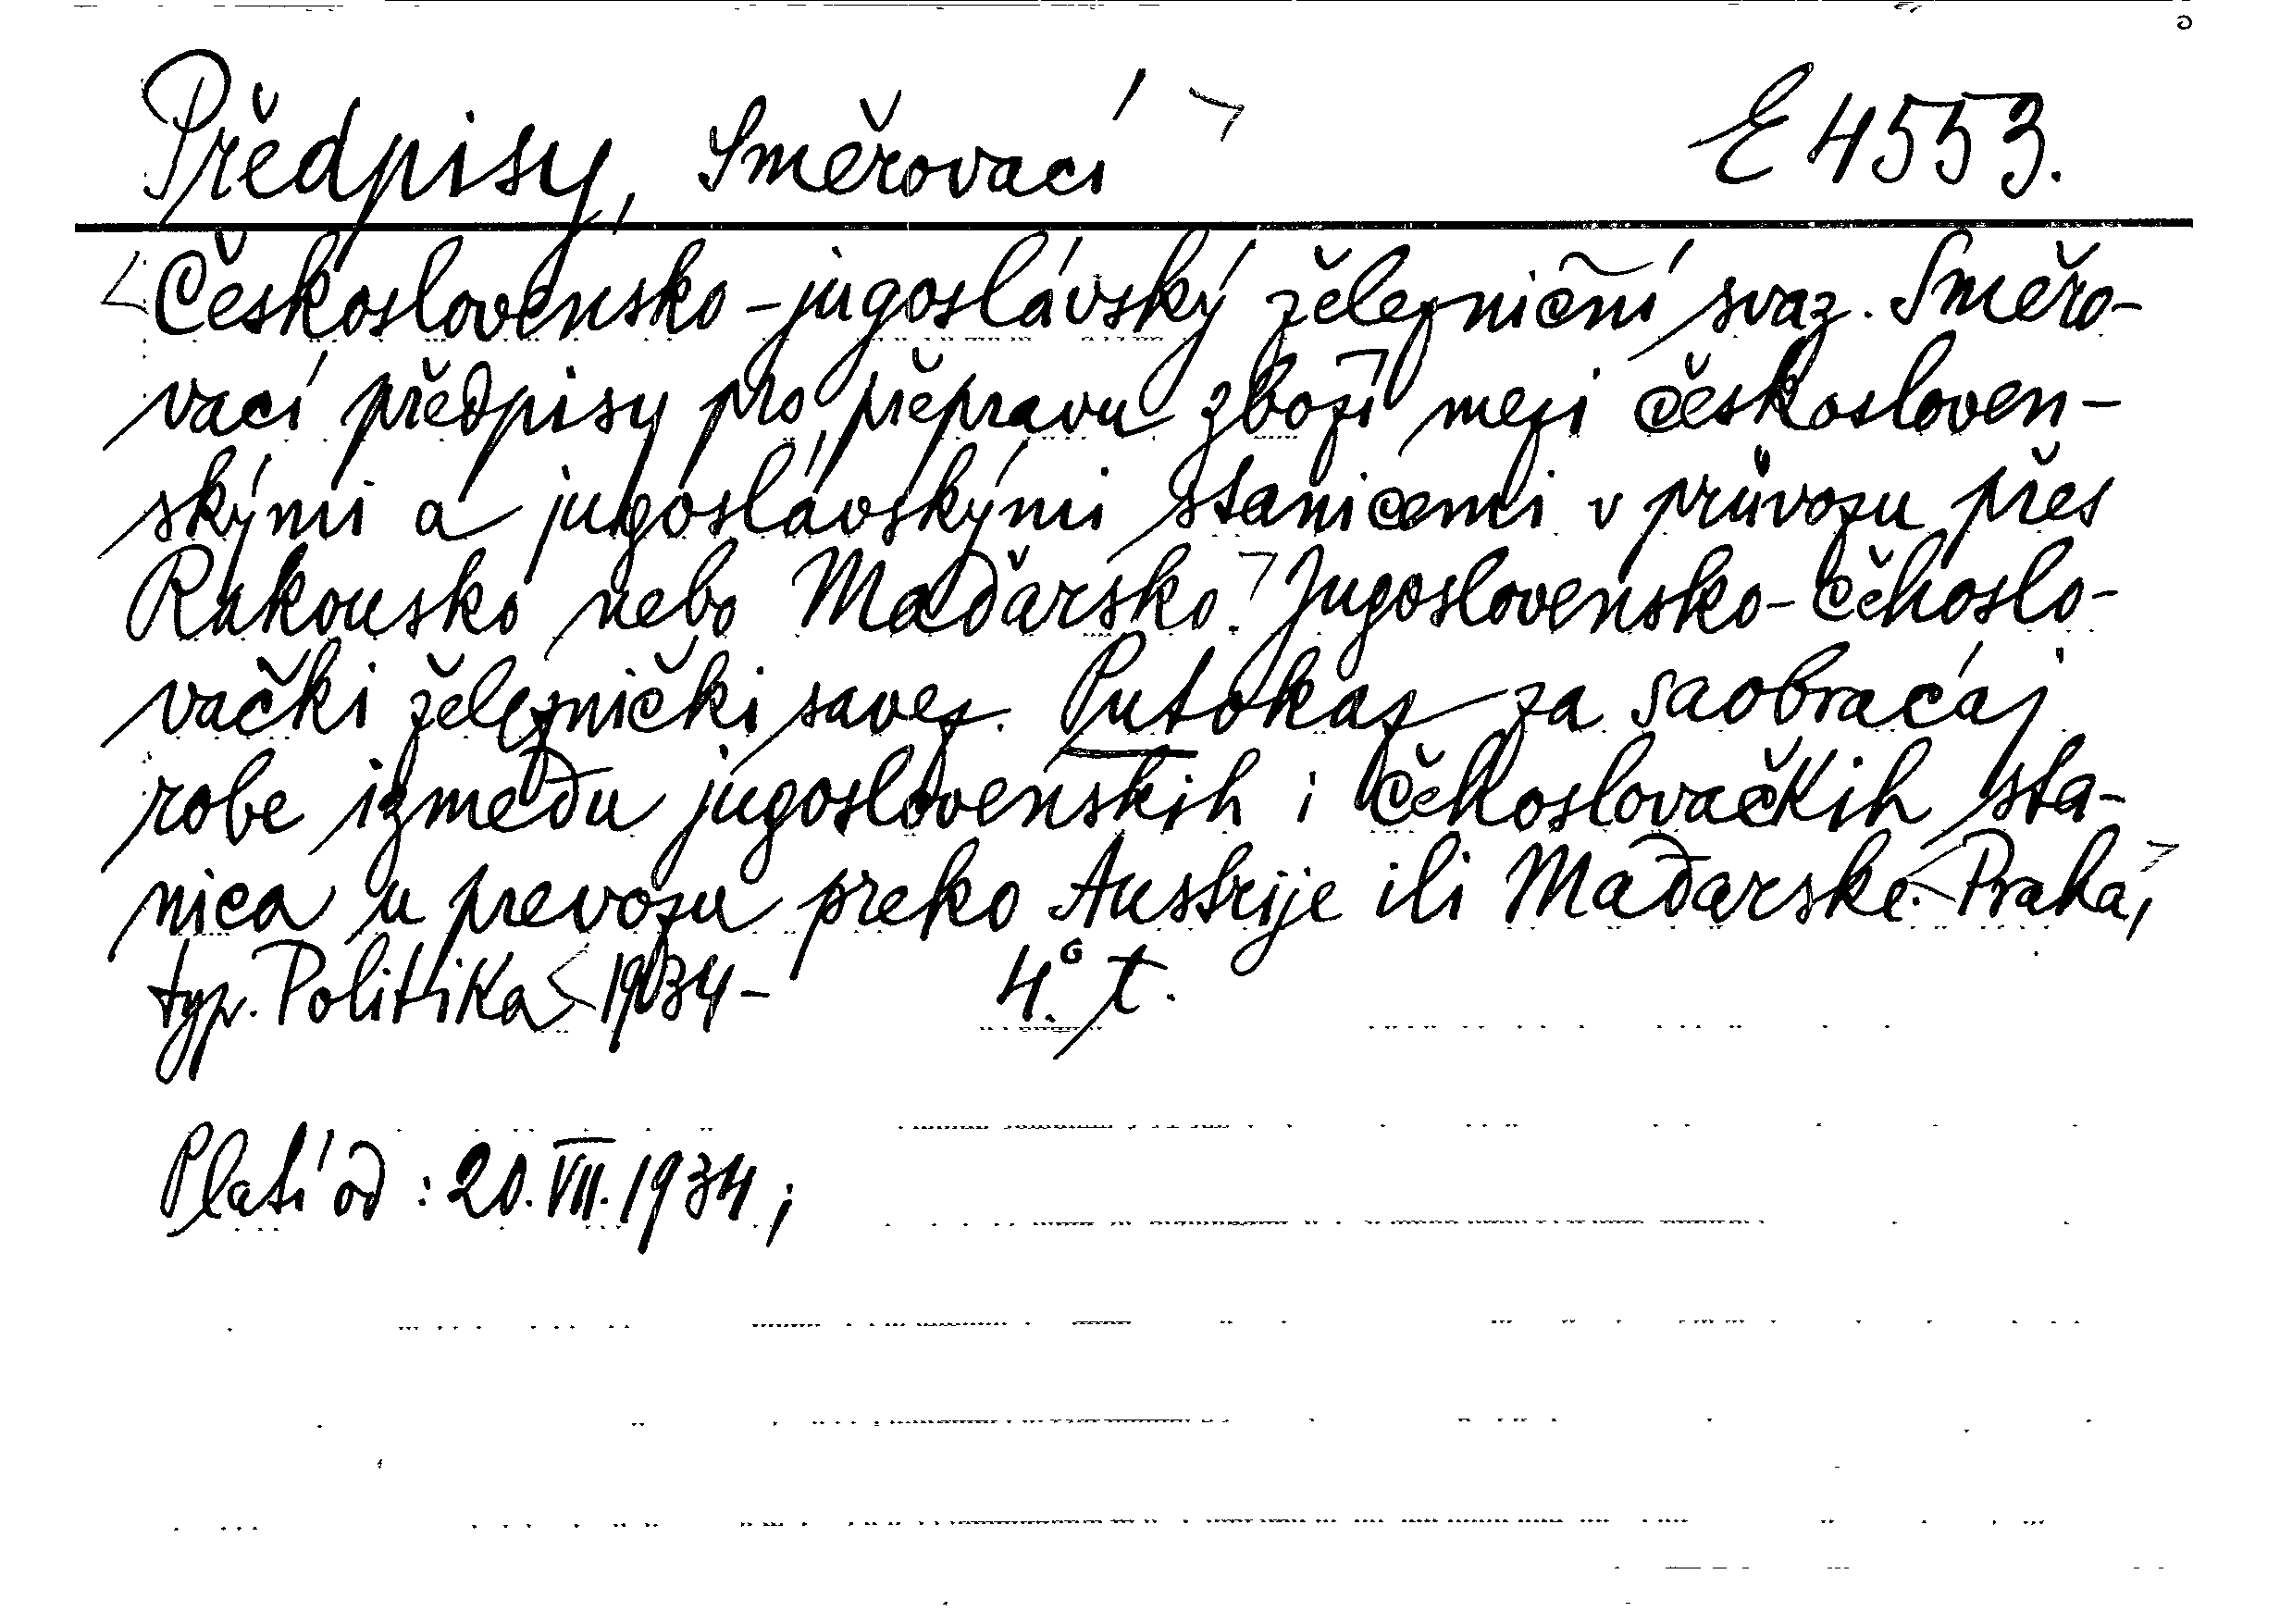 Předpisy, Směrovací
E 4553.
Československo-jugoslávský železniční svaz. Směro-
vací předpisy pro přepravu zboží mezi českosloven-
skými a jugoslávskými stanicemi v průvozu přes
Rakousko nebo Maďarsko. Jugoslovensko-čehoslo-
vački železnički savez. Putokaz za saobraćaj
robe između jugoslovenskih i čehoslovačkih sta-
nica u prevozu preko Austrije ili Mađarske. Praha,
typ. Politika 1934- 4° t.
Platí od: 20.VII.1934;